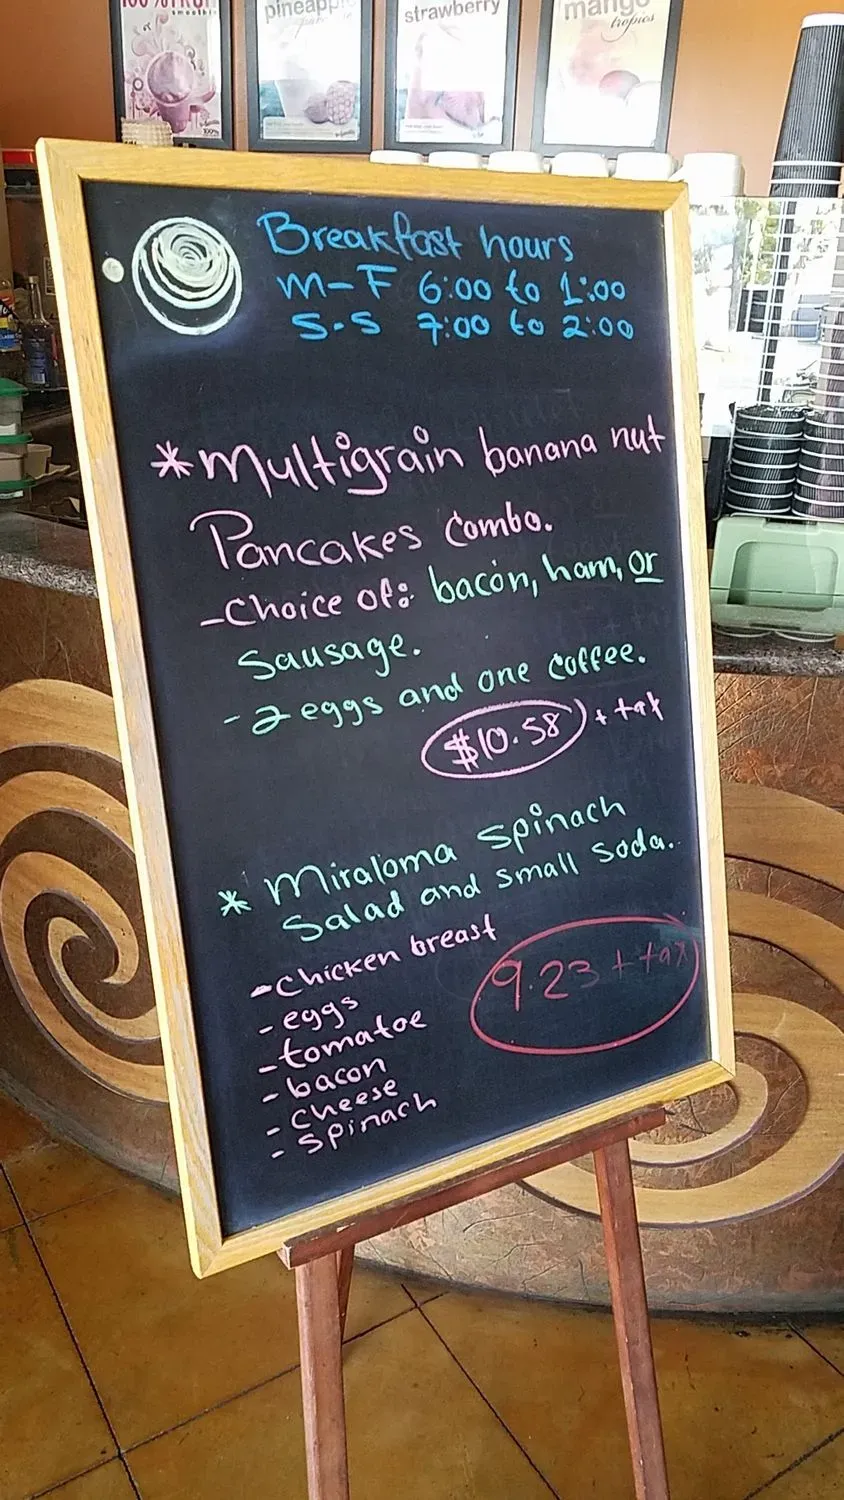 100% FRUIT
smoothie
pineapple
strawberry
mango
tropics
Breakfast hours
M-F 6:00 to 1:00
S-S 7:00 to 2:00
* Multigrain banana nut
Pancakes combo.
- Choice of: bacon, ham, or
Sausage.
- 2 eggs and one coffee.
$10.58 + tax
* Miraloma spinach
Salad and small soda.
- Chicken breast
9.23 + tax
- eggs
- tomatoe
- bacon
- cheese
- spinach